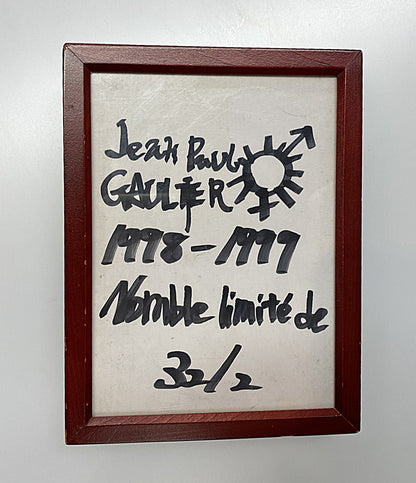 Jean Paul
GAULTIER
1998-1999
Nomble limité de
32/2